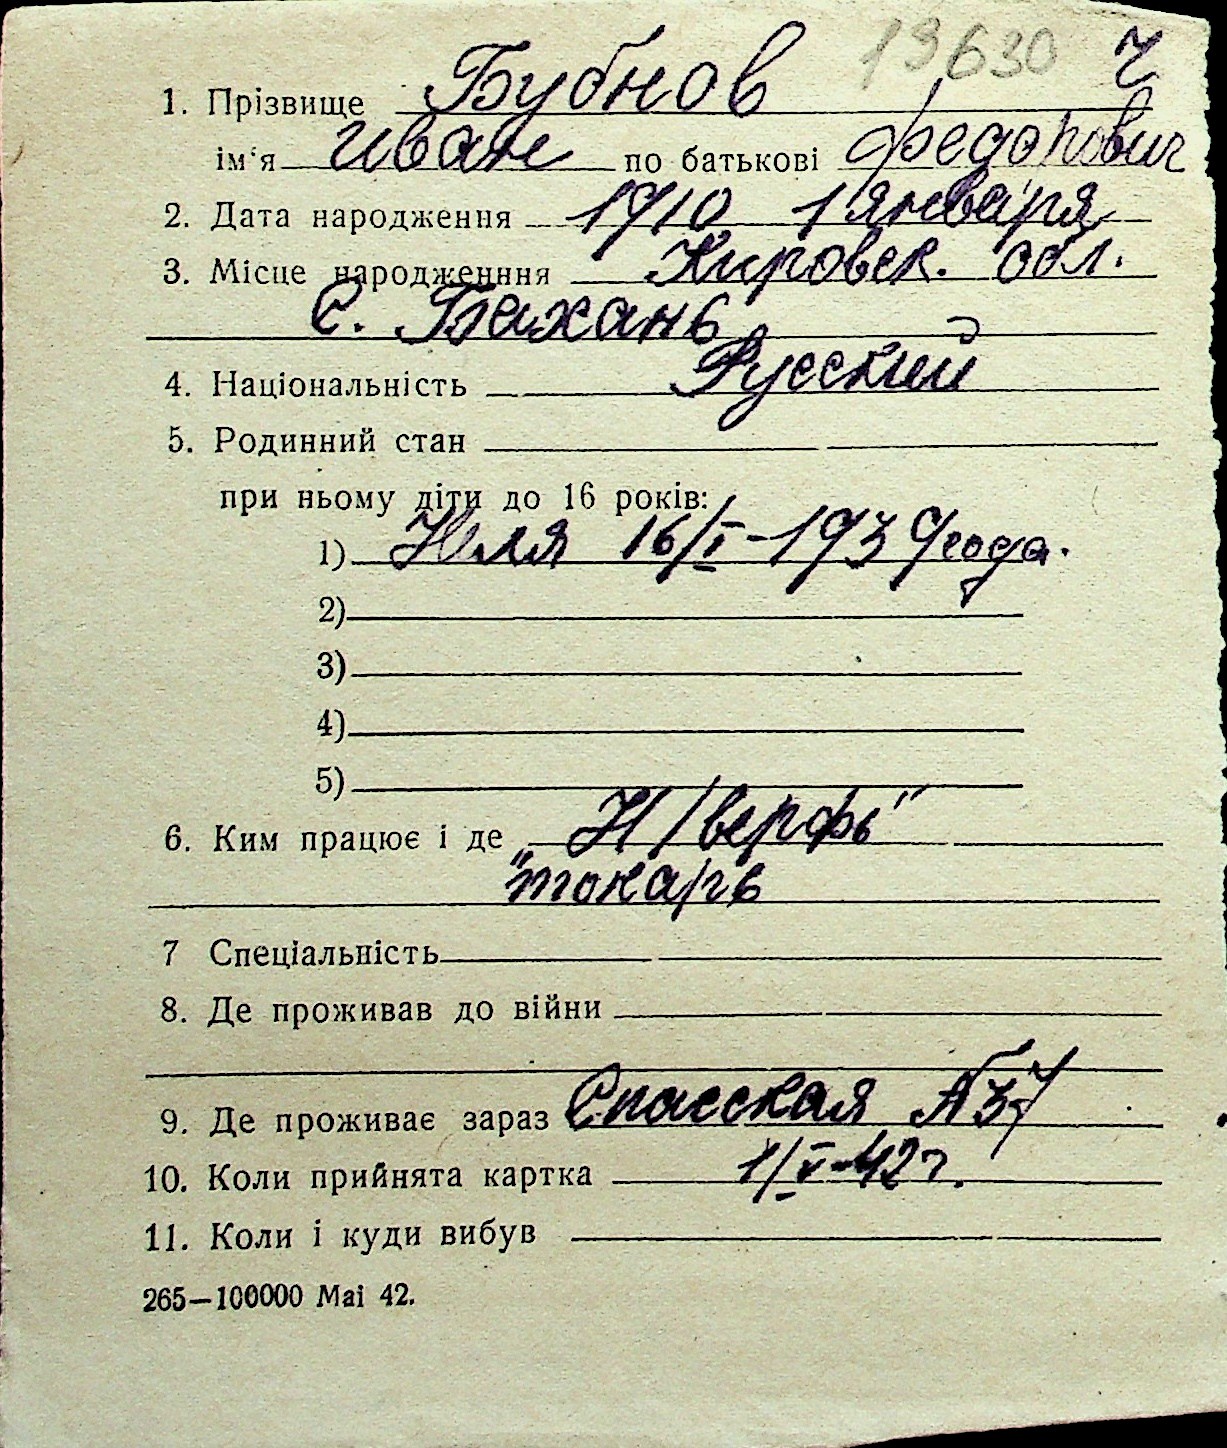 13630 Ч
1. Прізвище Бубнов
ім‘я Иван по батькові Федорович
2. Дата народження 1910 1 января
3. Місце народженння Кировск. обл.
С. Бахань
4. Національність Русский
5. Родинний стан
при ньому діти до 16 років:
1) Юля 16/I-1939 года.
2)
3)
4)
5)
6. Ким працює і де Н/верфь"
"токарь
7 Спеціальність
8. Де проживав до війни
9. Де проживає зараз Спасская №37
10. Коли прийнята картка 1/V-42 г.
11. Коли і куди вибув
265—100000 Маі 42.